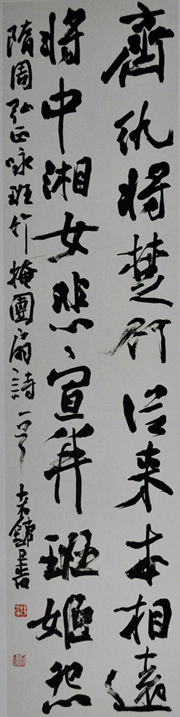 齊紈將楚竹從來本相遠
將申湘女悲宜并班姬怨
隋周弘正咏班竹掩團扇詩一首 書